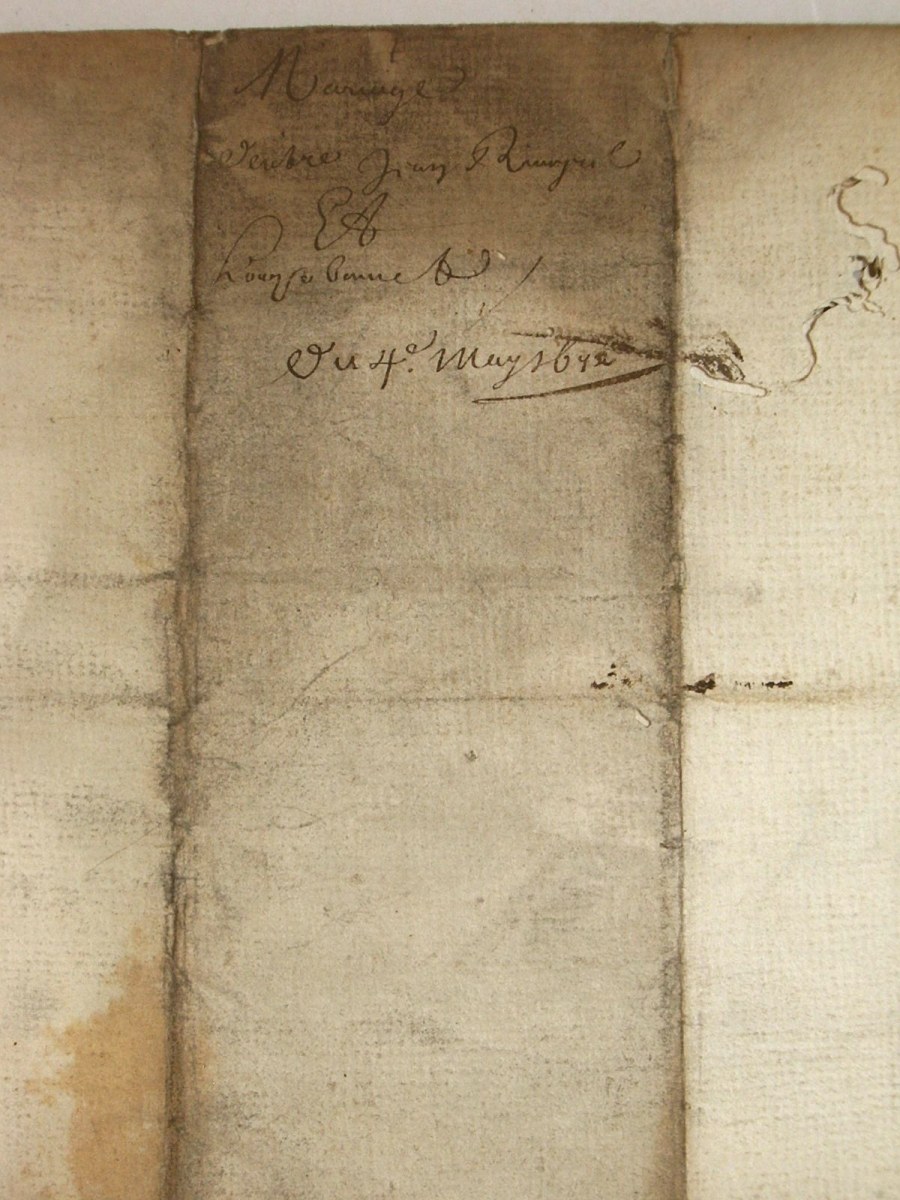 Mariage
D'entre Jean
Et
Louyse bonnet
Du 4e. May 1672